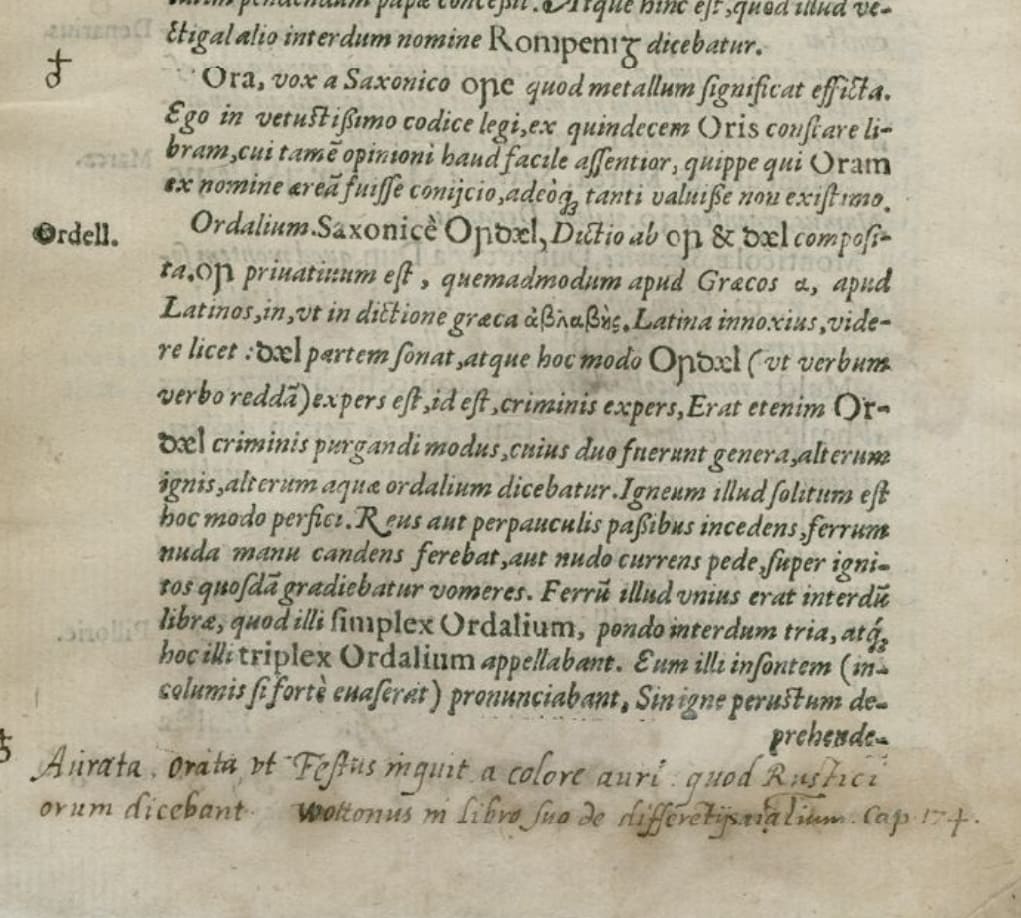 pendendum papæ conceßit. Atque hinc est, quod illud ve-
ctigal alio interdum nomine Rompeniᵹ dicebatur.
Ora, vox a Saxonico oꞃe quod metallum significat efficta.
Ego in vetustißimo codice legi, ex quindecem Oris constare li-
bram, cui tamē opinioni haud facile assentior, quippe qui Oram
ex nomine æreā fuisse conijcio, adeòq; tanti valuiße non existimo.
Ordell.
Ordalium. Saxonicè Oꞃdæl, Dictio ab oꞃ & dæl composi-
ta. oꞃ priuatiuum est, quemadmodum apud Græcos α, apud
Latinos, in, vt in dictione græca ἀβλαβὴς. Latina innoxius, vide-
re licet: dæl partem sonat, atque hoc modo Oꞃdæl (vt verbum
verbo reddā) expers est, id est, criminis expers, Erat etenim Or-
dæl criminis purgandi modus, cuius duo fuerunt genera, alterum
ignis, alterum aquæ ordalium dicebatur. Igneum illud solitum est
hoc modo perfici. Reus aut perpauculis paßibus incedens, ferrum
nuda manu candens ferebat, aut nudo currens pede, super igni-
tos quosdā gradiebatur vomeres. Ferrū illud vnius erat interdū
libræ, quod illi simplex Ordalium, pondo interdum tria, atq́;
hoc illi triplex Ordalium appellabant. Eum illi insontem (in-
columis si fortè euaserit) pronunciabant, Sin igne perustum de-
prehende-
Aurata, orata, vt Festus inquit a colore auri: quod Rustici
orum dicebant. Wottonus in libro suo de differētijs aīalium. Cap. 174.